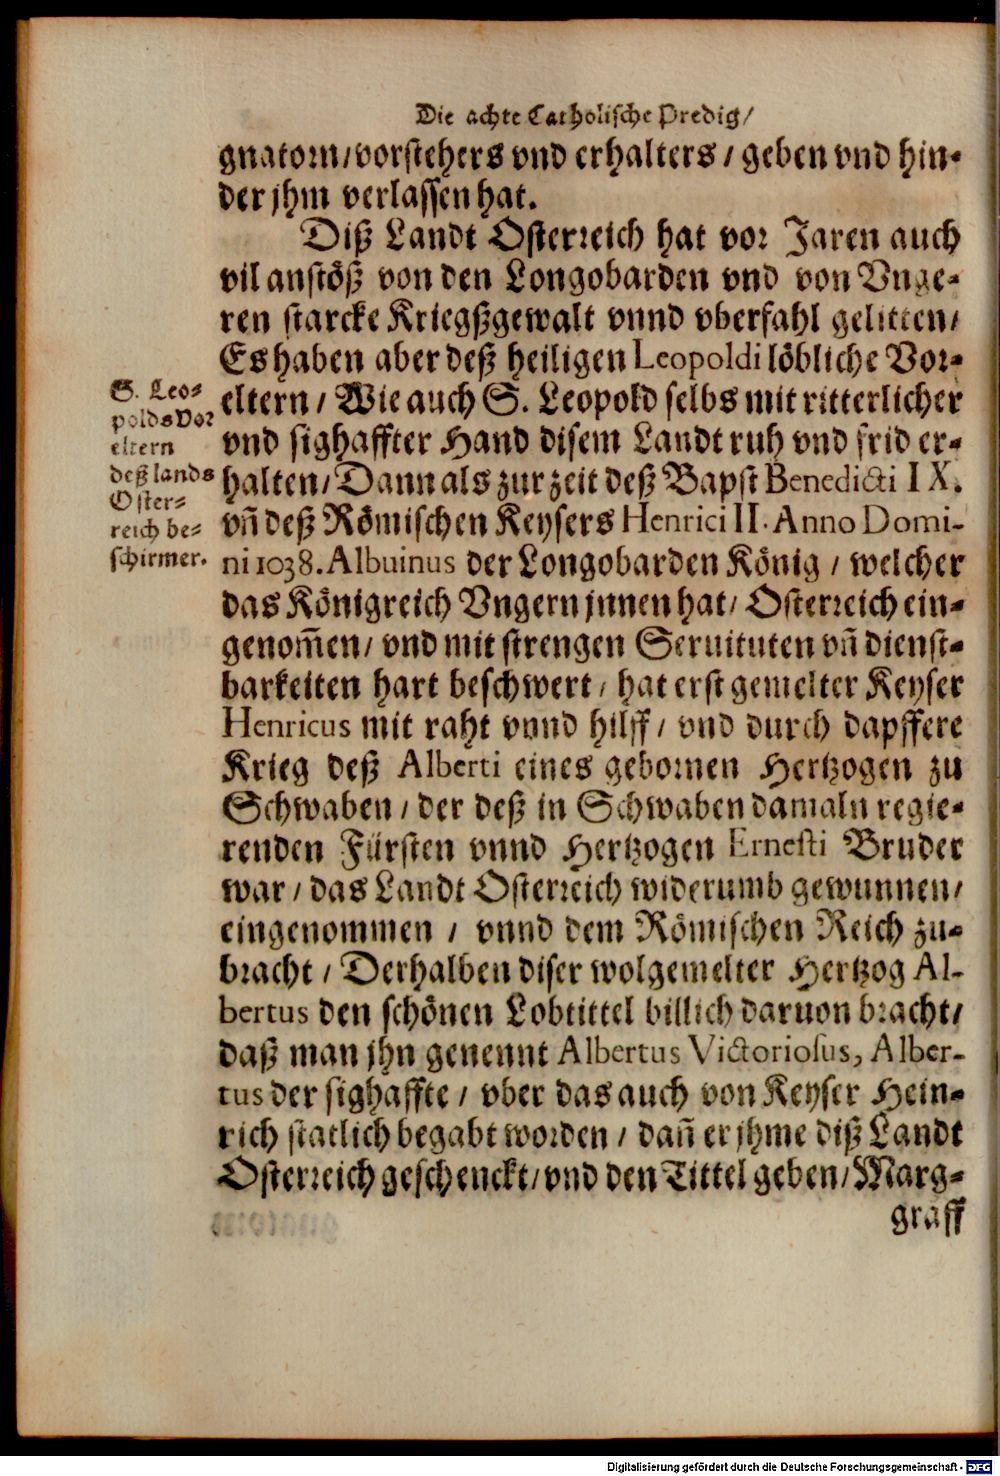 Die achte Catholische Predig/
gnatorn/vorstehers vnd erhalters/ geben vnd hin-
der jhm verlassen hat.
Diß Landt Osterreich hat vor Jaren auch
vil anstöß von den Longobarden vnd von Vnge-
ren starcke Kriegßgewalt vnnd vberfahl gelitten/
Es haben aber deß heiligen Leopoldi löbliche Vor-
eltern/ Wie auch S. Leopold selbs mit ritterlicher
vnd sighaffter Hand disem Landt ruh vnd frid er-
halten/ Dann als zur zeit deß Bapst Benedicti IX.
vñ deß Römischen Keysers Henrici II. Anno Domi-
ni 1038. Albuinus der Longobarden König/ welcher
das Königreich Vngern jnnen hat/ Osterreich ein-
genom̃en/ vnd mit strengen Seruituten vñ dienst-
barkeiten hart beschwert/ hat erst gemelter Keyser
Henricus mit raht vnnd hilff/ vnd durch dapffere
Krieg deß Alberti eines gebornen Hertzogen zu
Schwaben/ der deß in Schwaben damaln regie-
renden Fürsten vnnd Hertzogen Ernesti Bruder
war/ das Landt Osterreich widerumb gewunnen/
eingenommen/ vnnd dem Römischen Reich zu-
bracht/ Derhalben diser wolgemelter Hertzog Al-
bertus den schönen Lobtittel billich daruon bracht/
daß man jhn genennt Albertus Victoriosus, Alber-
tus der sighaffte/ vber das auch von Keyser Hein-
rich statlich begabt worden/ dañ er jhme diß Landt
Osterreich geschenckt/ vnd den Tittel geben/ Marg-
graff
S. Leo-
polds Vor
eltern
deß lands
Oster-
reich be-
schirmer.
Digitalisierung gefördert durch die Deutsche Forschungsgemeinschaft - DFG